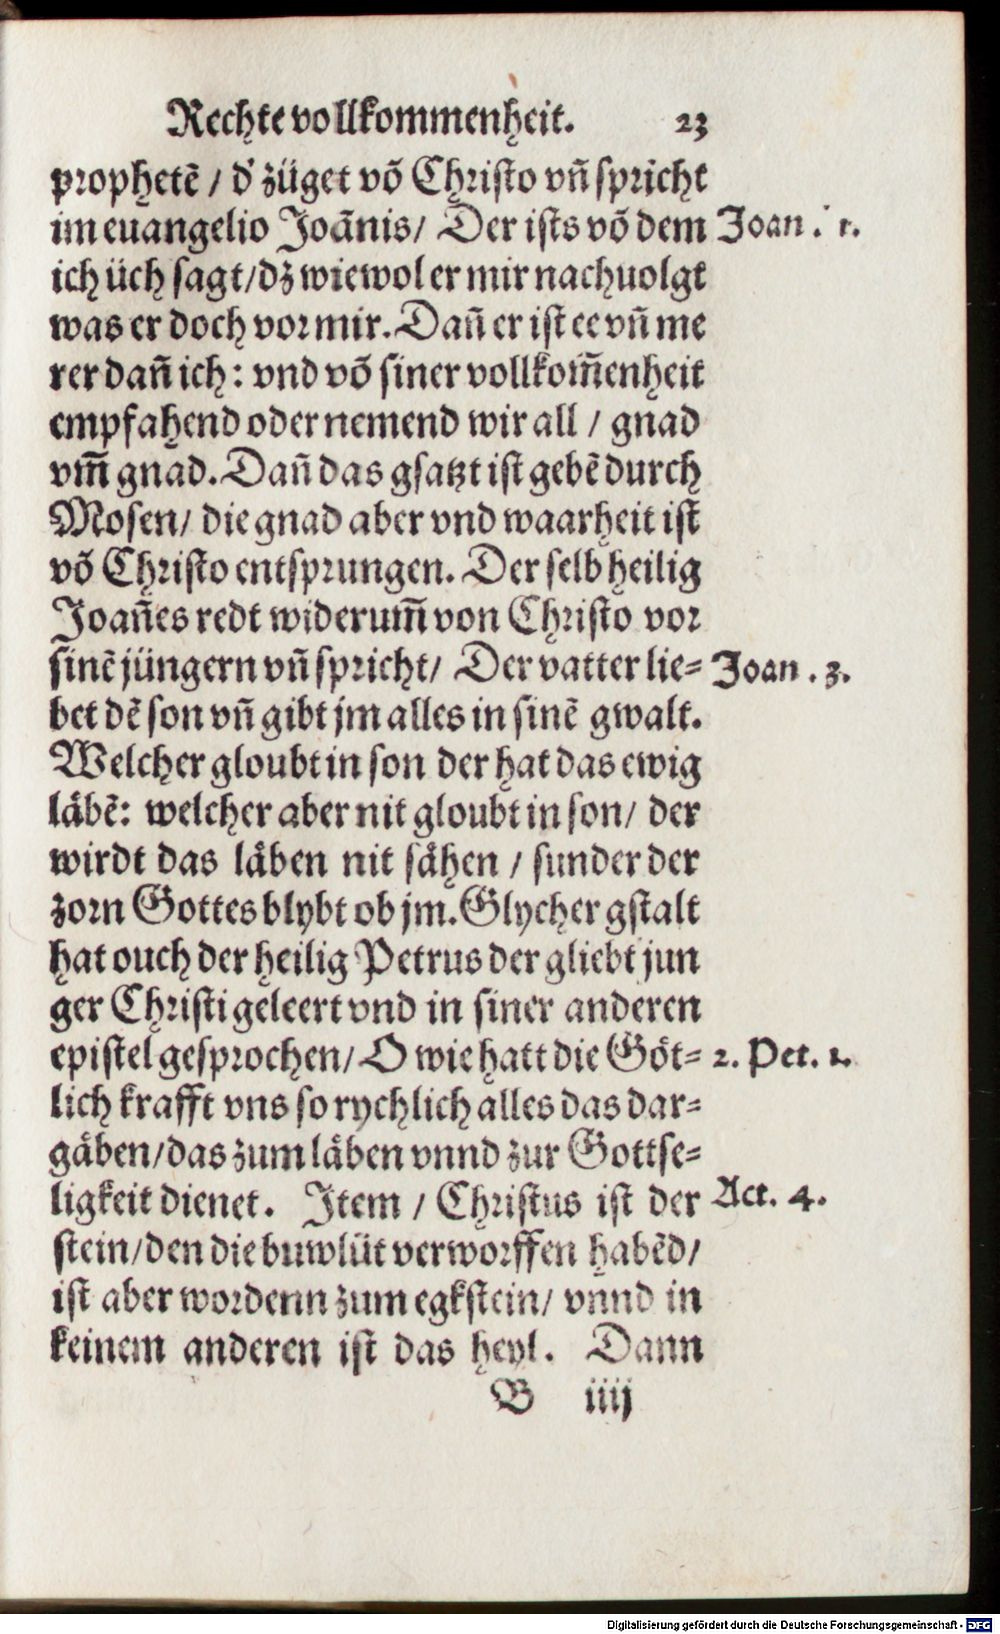 Rechte vollkommenheit. 23
prophetē / d' züget võ Christo vñ spricht
im euangelio Joānis / Der ists võ dem Joan. 1.
ich üch sagt / dz wiewol er mir nachuolgt
was er doch vor mir. Dañ er ist ee vñ me
rer dañ ich: vnd võ siner vollkom̄enheit
empfahend oder nemend wir all / gnad
vm̄ gnad. Dañ das gsatzt ist gebē durch
Mosen / die gnad aber vnd waarheit ist
võ Christo entsprungen. Der selb heilig
Joañes redt widerum̄ von Christo vor
sinē jüngern vñ spricht / Der vatter lie= Joan. 3.
bet dē son vñ gibt jm alles in sinē gwalt.
Welcher gloubt in son der hat das ewig
läbē: welcher aber nit gloubt in son / der
wirdt das läben nit sähen / sunder der
zorn Gottes blybt ob jm. Glycher gstalt
hat ouch der heilig Petrus der gliebt jun
ger Christi geleert vnd in siner anderen
epistel gesprochen / O wie hatt die Göt= 2. Pet. 1.
lich krafft vns so rychlich alles das dar=
gäben / das zum läben vnnd zur Gottse=
ligkeit dienet. Item / Christus ist der Act. 4.
stein / den die buwlüt verworffen habēd /
ist aber wordenn zum egkstein / vnnd in
keinem anderen ist das heyl. Dann
B iiij
Digitalisierung gefördert durch die Deutsche Forschungsgemeinschaft - DFG